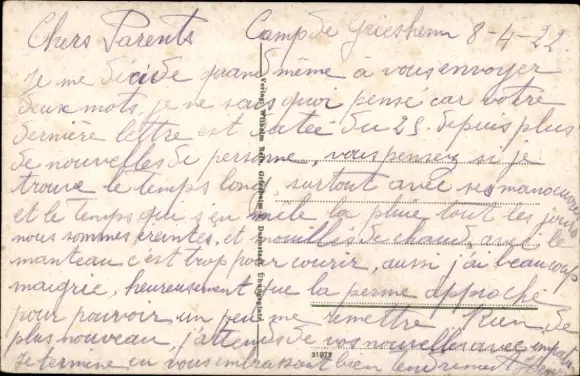 Chers Parents Camp de Griesheim 8-4-22
Je me décide quand même à vous envoyer
deux mots, je ne sais quoi pensé car votre
dernière lettre est datée du 25 depuis plus
de nouvelles de personne, vous pensez si je
trouve le temps long, surtout avec ses manœuvres
et le temps qui s'en mêle la pluie tout les jours
nous sommes ereintes, et mouillés de chaud, avec le
manteau c'est trop pour courir, aussi j'ai beaucoup
maigrie, heureusement que la perme approche
pour pouvoir un peu me remettre Rien de
plus nouveau, j'attends de vos nouvelles avec
Je termine en vous embrassant bien tendrement
Verlag Wilhelm Griesheim b. Darmstadt, Übungsplatz
31972